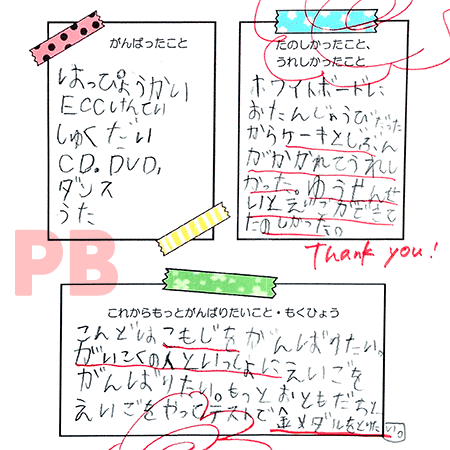 がんばったこと
はっぴょうかい
ECCけんてい
しゅくだい
CD。DVD,
ダンス
うた
たのしかったこと、
うれしかったこと
ホワイトボードに
おたんじょうびだった
からケーキとじぶん
がかかれてうれし
かった。ゆうせんせ
いとえいががができて
たのしかった。
Thank you!
PB
これからもっとがんばりたいこと・もくひょう
こんどはこもじをがんばりたい。
がいこくの人といっしょにえいごを
がんばりたい。もっとおともだちと
えいごをやってテストで金メダルをとりたい。